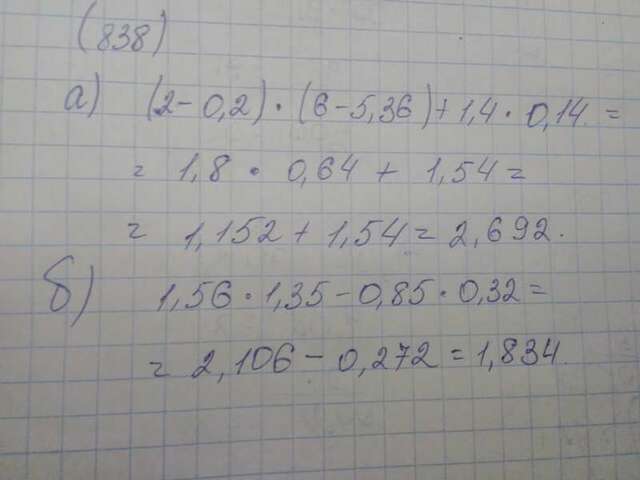 (838)
а) (2-0,2)·(6-5,36)+1,4·0,14 =
= 1,8 · 0,64 + 1,54 =
= 1,152 + 1,54 = 2,692.
б) 1,56·1,35-0,85·0,32=
= 2,106 - 0,272 = 1,834.